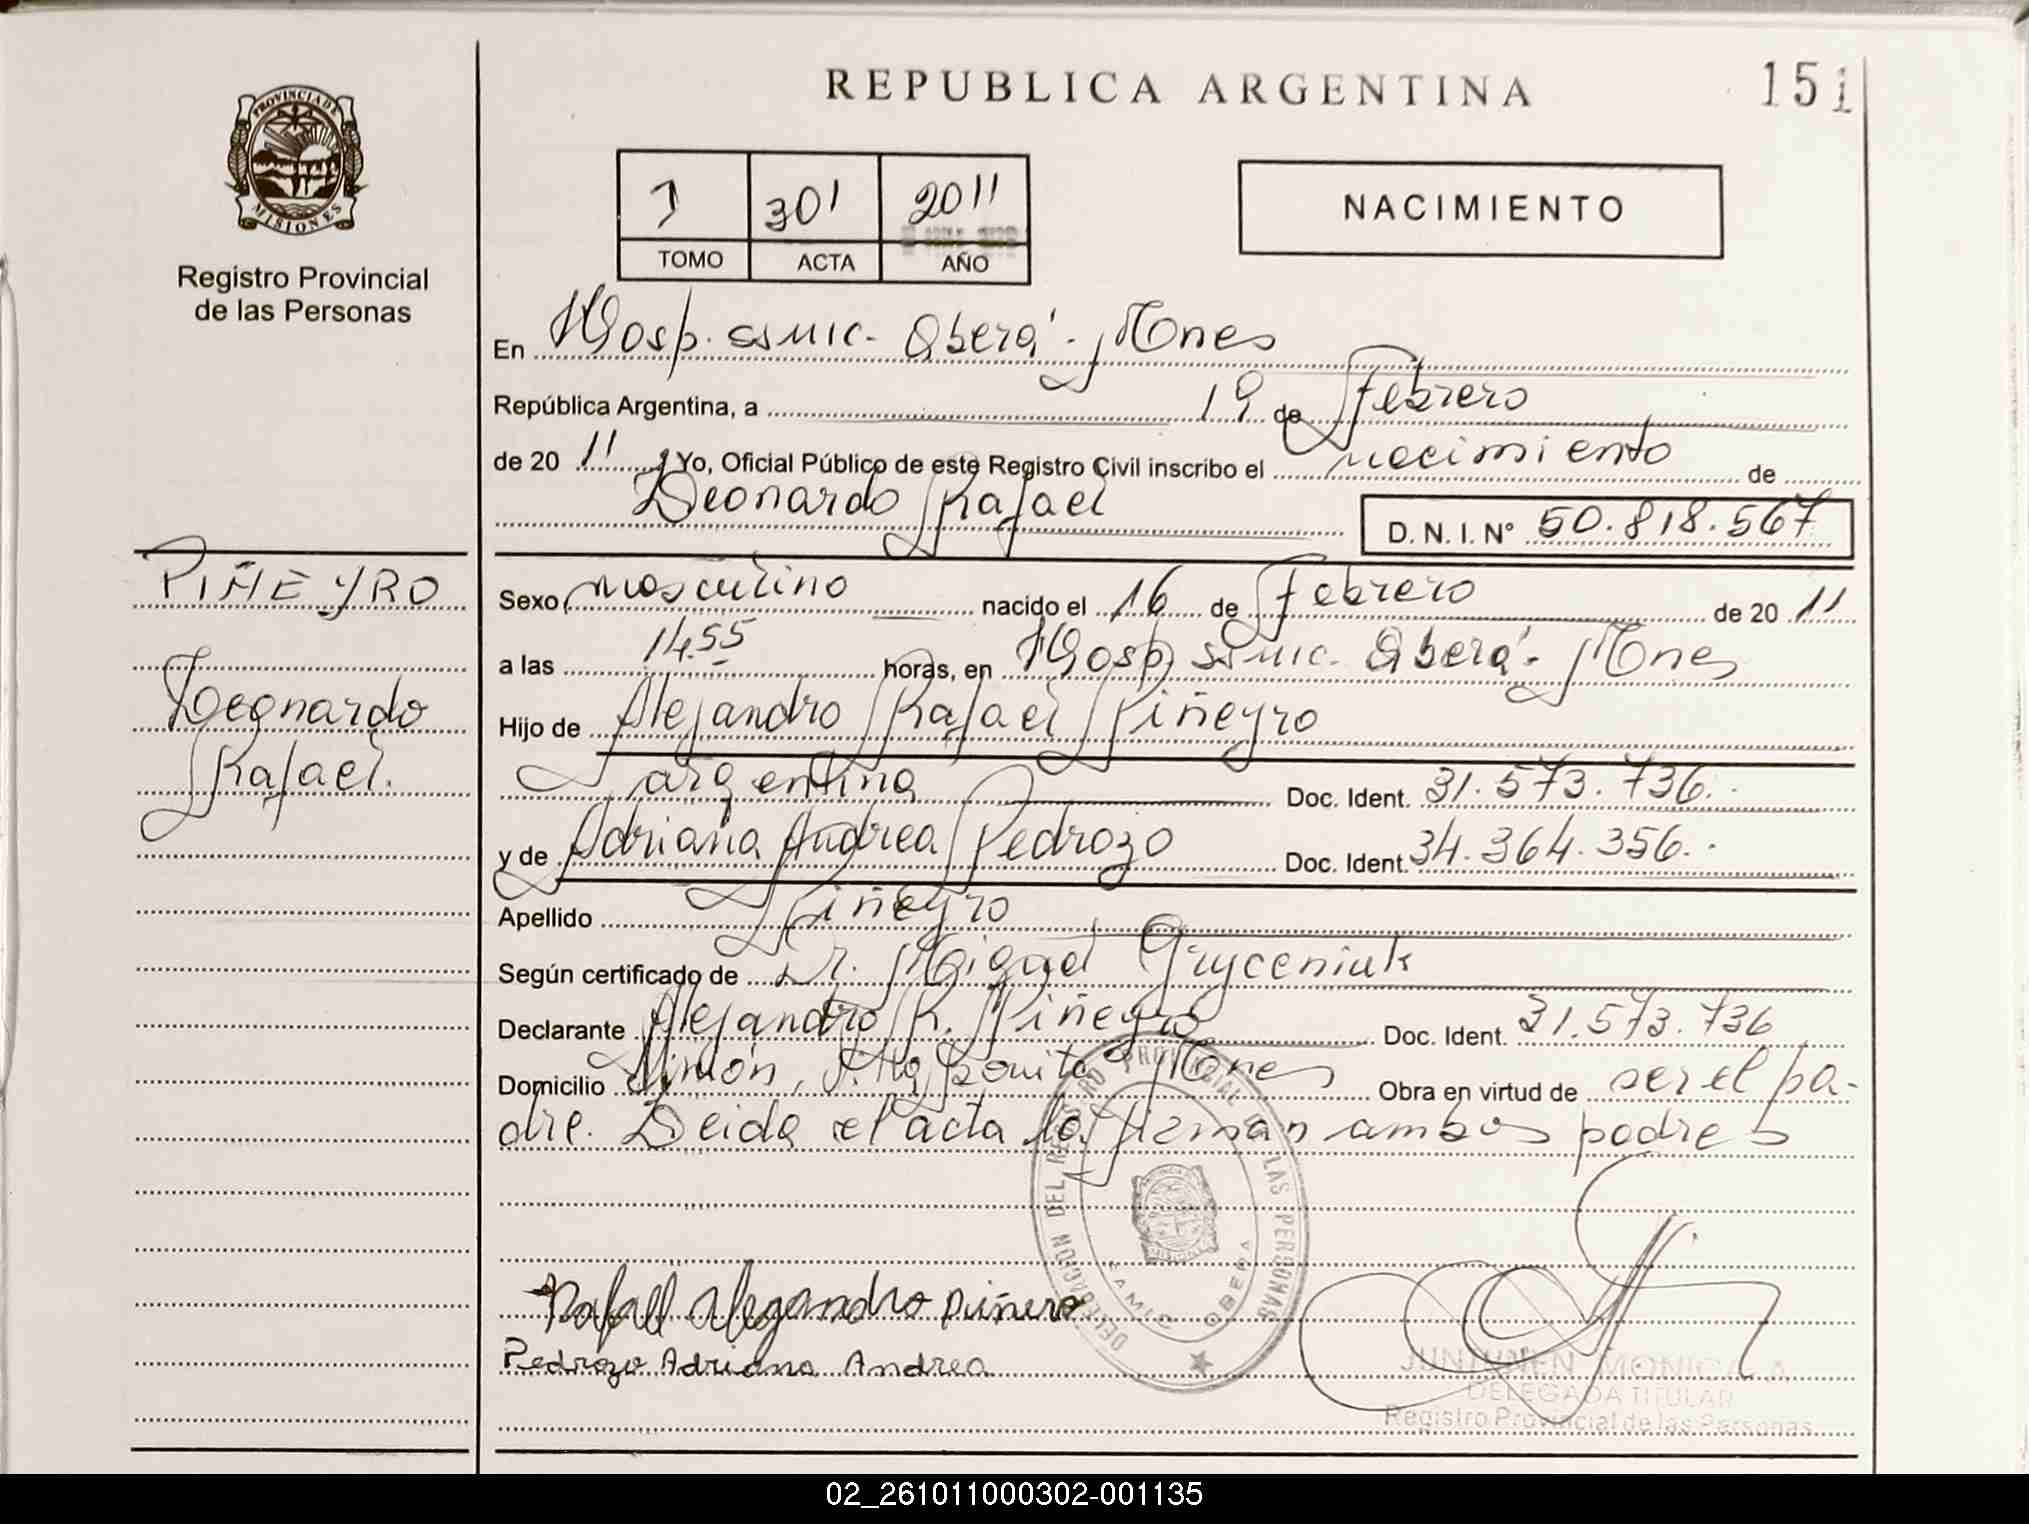 REPUBLICA ARGENTINA
151
PROVINCIA DE
MISIONES
Registro Provincial
de las Personas
1 301 2011
TOMO ACTA AÑO
NACIMIENTO
En Hosp. SAMIC. Oberá - Mnes
República Argentina, a 19 de Febrero
de 20 11 Yo, Oficial Público de este Registro Civil inscribo el nacimiento de
Leonardo Rafael
D. N. I. N° 50.818.567
PIÑEYRO
Leonardo
Rafael.
Sexo masculino nacido el 16 de Febrero de 20 11
a las 14.55 horas, en Hosp. SAMIC. Oberá - Mnes
Hijo de Alejandro Rafael Piñeyro
argentina Doc. Ident. 31.573.736.
y de Adriana Andrea Pedrozo Doc. Ident. 34.364.356.
Apellido Piñeyro
Según certificado de Dr. Miguel Gryceniuk
Declarante Alejandro R. Piñeyro Doc. Ident. 31.573.736
Domicilio Bonita Mnes Obra en virtud de ser el pa-
dre. Leida el acta la firman ambos padres
DELEGACION DEL REGISTRO PROVINCIAL DE LAS PERSONAS
SAMIC OBERA
Rafael Alegandro Piñero
Pedrozo Adriana Andrea
JUNTUNEN MONICA A
DELEGADA TITULAR
Registro Provincial de las Personas
02_261011000302-001135